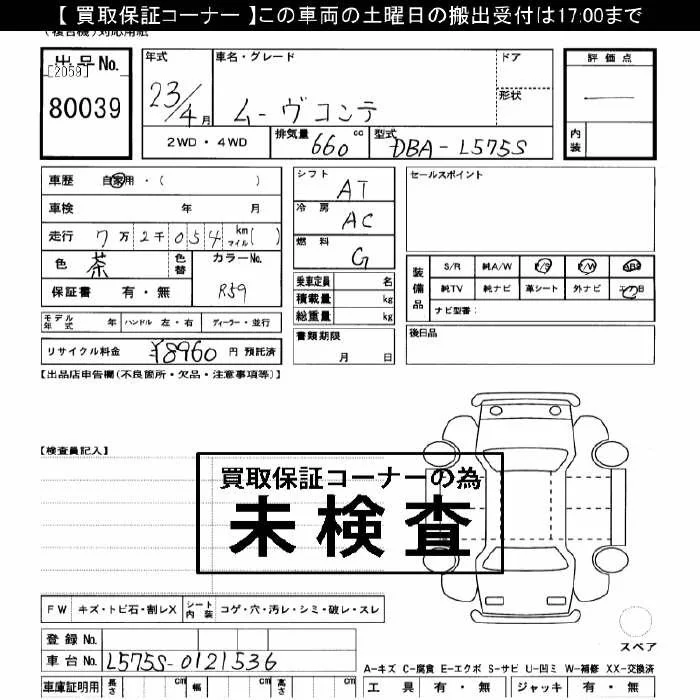 【 買取保証コーナー 】この車両の土曜日の搬出受付は17:00まで
出品No. [2059] 80039
年式 23/4月
車名・グレード ムーヴコンテ
ドア
形状
評価点 —
内装
2WD・4WD 排気量 660 cc 型式 DBA-L575S
車歴 自家用・( )
車検 年 月
走行 7万2千054 km マイル( )
色 茶 色替 カラーNo. R59
保証書 有・無
モデル年式 年 ハンドル 左・右 ディーラー・並行
リサイクル料金 ¥8960 円 預託済
シフト AT
冷房 AC
燃料 G
乗車定員 名
積載量 kg
総重量 kg
書類期限
月 日
セールスポイント
装備品
S/R 純A/W P/S P/W ABS
純TV 純ナビ 革シート 外ナビ エアB
ナビ型番:
後日品
【出品店申告欄(不良箇所・欠品・注意事項等)】
【検査員記入】
買取保証コーナーの為
未検査
FW キズ・トビ石・割レX シート内装 コゲ・穴・汚レ・シミ・破レ・スレ
登録No.
車台No. L575S-0121536
車庫証明用 長さ cm 幅 cm 高さ cm
スペア
A-キズ C-腐食 E-エクボ S-サビ U-凹ミ W-補修 XX-交換済
工具 有・無 ジャッキ 有・無